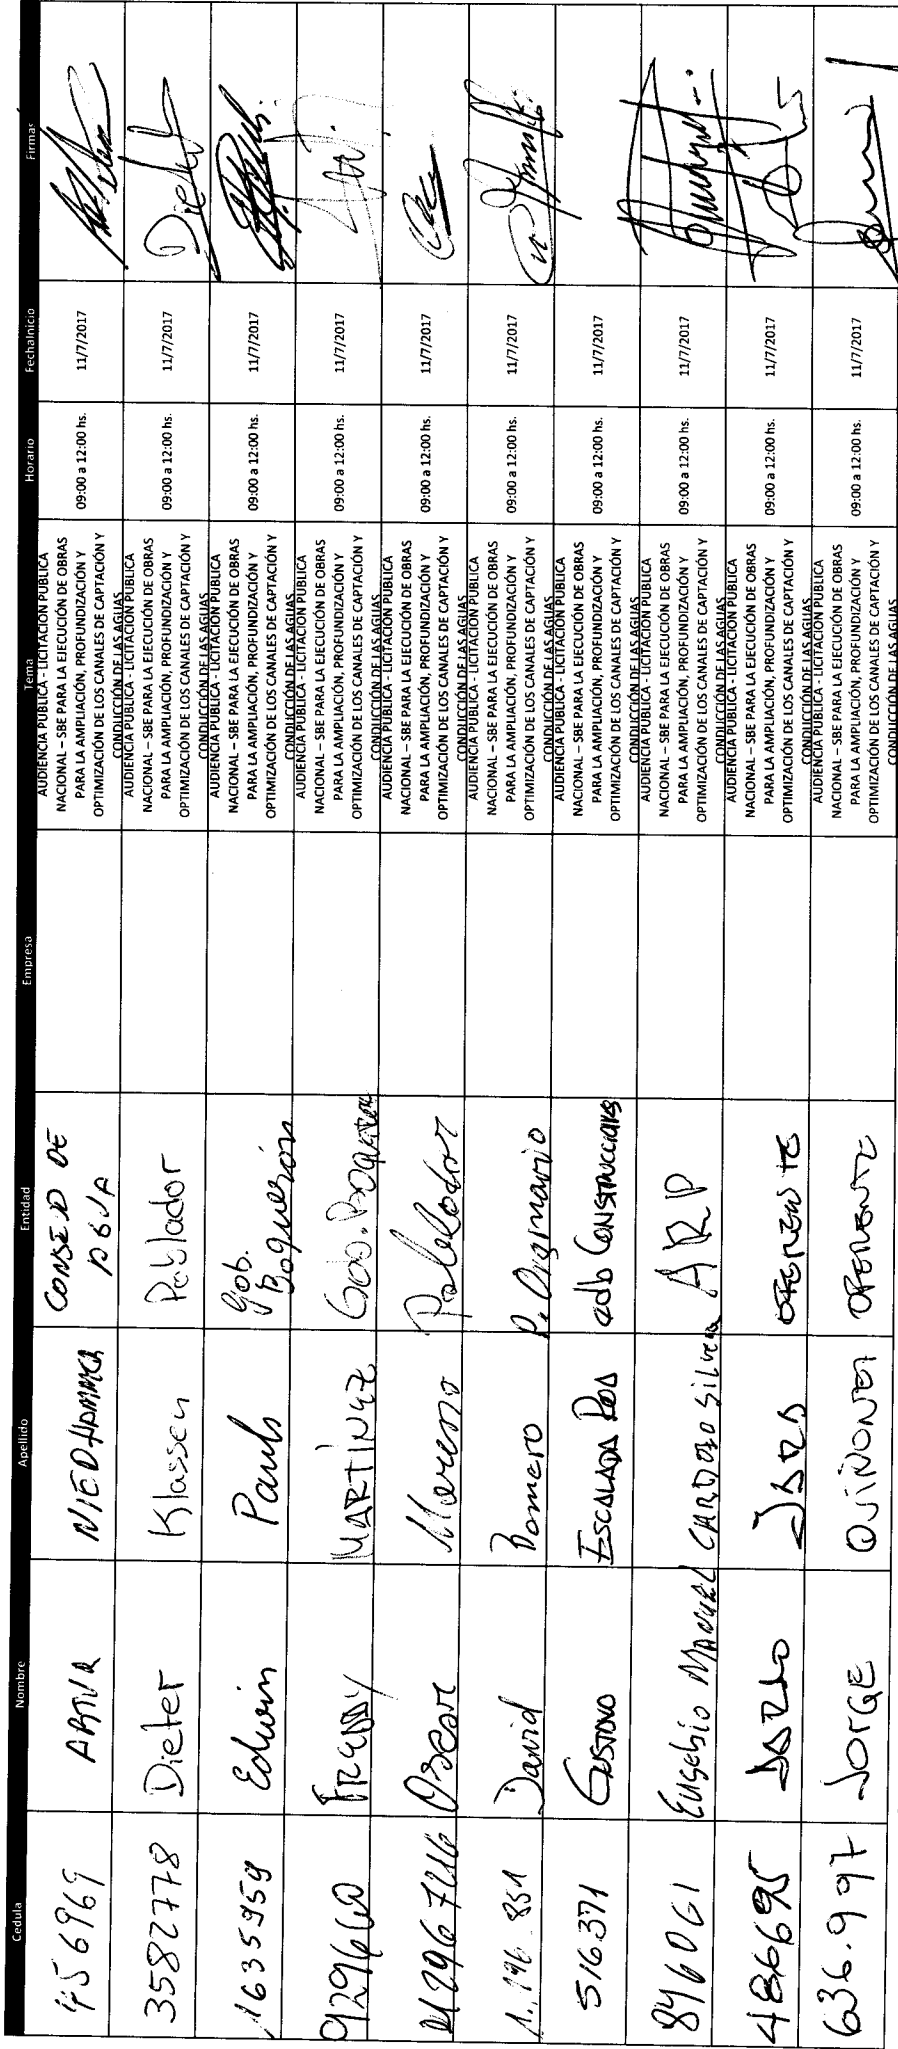 Cedula Nombre Apellido Entidad Empresa Tema Horario FechaInicio Firmas
756969 ARTUR NIEDHAMMER CONSEJO DE AGUA AUDIENCIA PÚBLICA - LICITACIÓN PÚBLICA NACIONAL – SBE PARA LA EJECUCIÓN DE OBRAS PARA LA AMPLIACIÓN, PROFUNDIZACIÓN Y OPTIMIZACIÓN DE LOS CANALES DE CAPTACIÓN Y CONDUCCIÓN DE LAS AGUAS 09:00 a 12:00 hs. 11/7/2017
3582778 Dieter Klassen Poblador AUDIENCIA PÚBLICA - LICITACIÓN PÚBLICA NACIONAL – SBE PARA LA EJECUCIÓN DE OBRAS PARA LA AMPLIACIÓN, PROFUNDIZACIÓN Y OPTIMIZACIÓN DE LOS CANALES DE CAPTACIÓN Y CONDUCCIÓN DE LAS AGUAS 09:00 a 12:00 hs. 11/7/2017
1635959 Edwin Pauls Gob. Boquerón AUDIENCIA PÚBLICA - LICITACIÓN PÚBLICA NACIONAL – SBE PARA LA EJECUCIÓN DE OBRAS PARA LA AMPLIACIÓN, PROFUNDIZACIÓN Y OPTIMIZACIÓN DE LOS CANALES DE CAPTACIÓN Y CONDUCCIÓN DE LAS AGUAS 09:00 a 12:00 hs. 11/7/2017
929660 FREDDY MARTÍNEZ Gob. Boquerón AUDIENCIA PÚBLICA - LICITACIÓN PÚBLICA NACIONAL – SBE PARA LA EJECUCIÓN DE OBRAS PARA LA AMPLIACIÓN, PROFUNDIZACIÓN Y OPTIMIZACIÓN DE LOS CANALES DE CAPTACIÓN Y CONDUCCIÓN DE LAS AGUAS 09:00 a 12:00 hs. 11/7/2017
Oscar Moreno Poblador AUDIENCIA PÚBLICA - LICITACIÓN PÚBLICA NACIONAL – SBE PARA LA EJECUCIÓN DE OBRAS PARA LA AMPLIACIÓN, PROFUNDIZACIÓN Y OPTIMIZACIÓN DE LOS CANALES DE CAPTACIÓN Y CONDUCCIÓN DE LAS AGUAS 09:00 a 12:00 hs. 11/7/2017
1.196.851 David Romero AUDIENCIA PÚBLICA - LICITACIÓN PÚBLICA NACIONAL – SBE PARA LA EJECUCIÓN DE OBRAS PARA LA AMPLIACIÓN, PROFUNDIZACIÓN Y OPTIMIZACIÓN DE LOS CANALES DE CAPTACIÓN Y CONDUCCIÓN DE LAS AGUAS 09:00 a 12:00 hs. 11/7/2017
516371 GUSTAVO ESCALADA CONSTRUCCIONES AUDIENCIA PÚBLICA - LICITACIÓN PÚBLICA NACIONAL – SBE PARA LA EJECUCIÓN DE OBRAS PARA LA AMPLIACIÓN, PROFUNDIZACIÓN Y OPTIMIZACIÓN DE LOS CANALES DE CAPTACIÓN Y CONDUCCIÓN DE LAS AGUAS 09:00 a 12:00 hs. 11/7/2017
846061 Eugebio Manuel CARDOZO Silvera ARP AUDIENCIA PÚBLICA - LICITACIÓN PÚBLICA NACIONAL – SBE PARA LA EJECUCIÓN DE OBRAS PARA LA AMPLIACIÓN, PROFUNDIZACIÓN Y OPTIMIZACIÓN DE LOS CANALES DE CAPTACIÓN Y CONDUCCIÓN DE LAS AGUAS 09:00 a 12:00 hs. 11/7/2017
486695 DARIO JARA OFERENTE AUDIENCIA PÚBLICA - LICITACIÓN PÚBLICA NACIONAL – SBE PARA LA EJECUCIÓN DE OBRAS PARA LA AMPLIACIÓN, PROFUNDIZACIÓN Y OPTIMIZACIÓN DE LOS CANALES DE CAPTACIÓN Y CONDUCCIÓN DE LAS AGUAS 09:00 a 12:00 hs. 11/7/2017
636.997 JORGE QUIÑONEZ OFERENTE AUDIENCIA PÚBLICA - LICITACIÓN PÚBLICA NACIONAL – SBE PARA LA EJECUCIÓN DE OBRAS PARA LA AMPLIACIÓN, PROFUNDIZACIÓN Y OPTIMIZACIÓN DE LOS CANALES DE CAPTACIÓN Y CONDUCCIÓN DE LAS AGUAS 09:00 a 12:00 hs. 11/7/2017